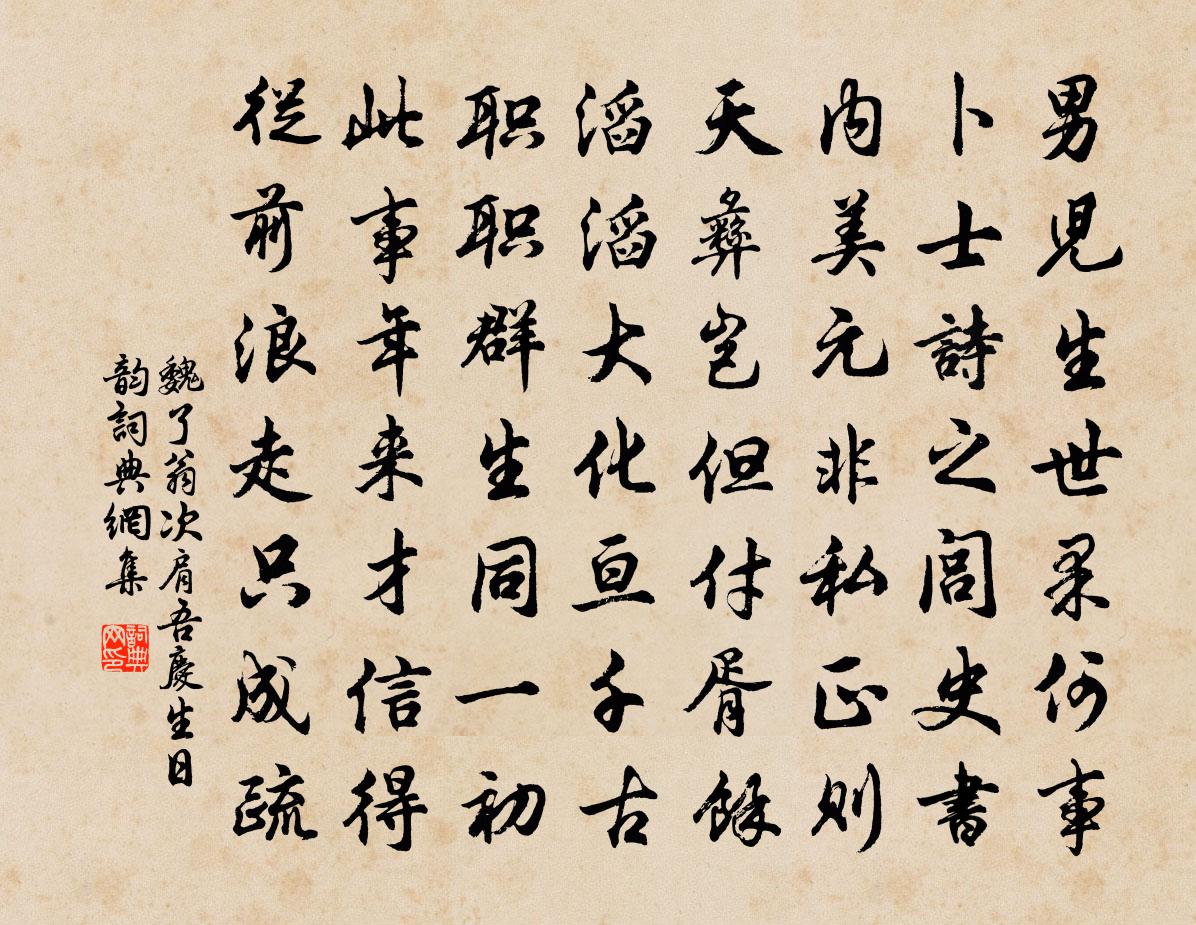 男児生世果何事
卜士詩之閭史書
内美元非私正則
天彝岂但付胥餘
滔滔大化亘千古
职职群生同一初
此事年来才信得
從前浪走只成疏
魏了翁次肩吾慶生日
韵詞典網集
詞典网印